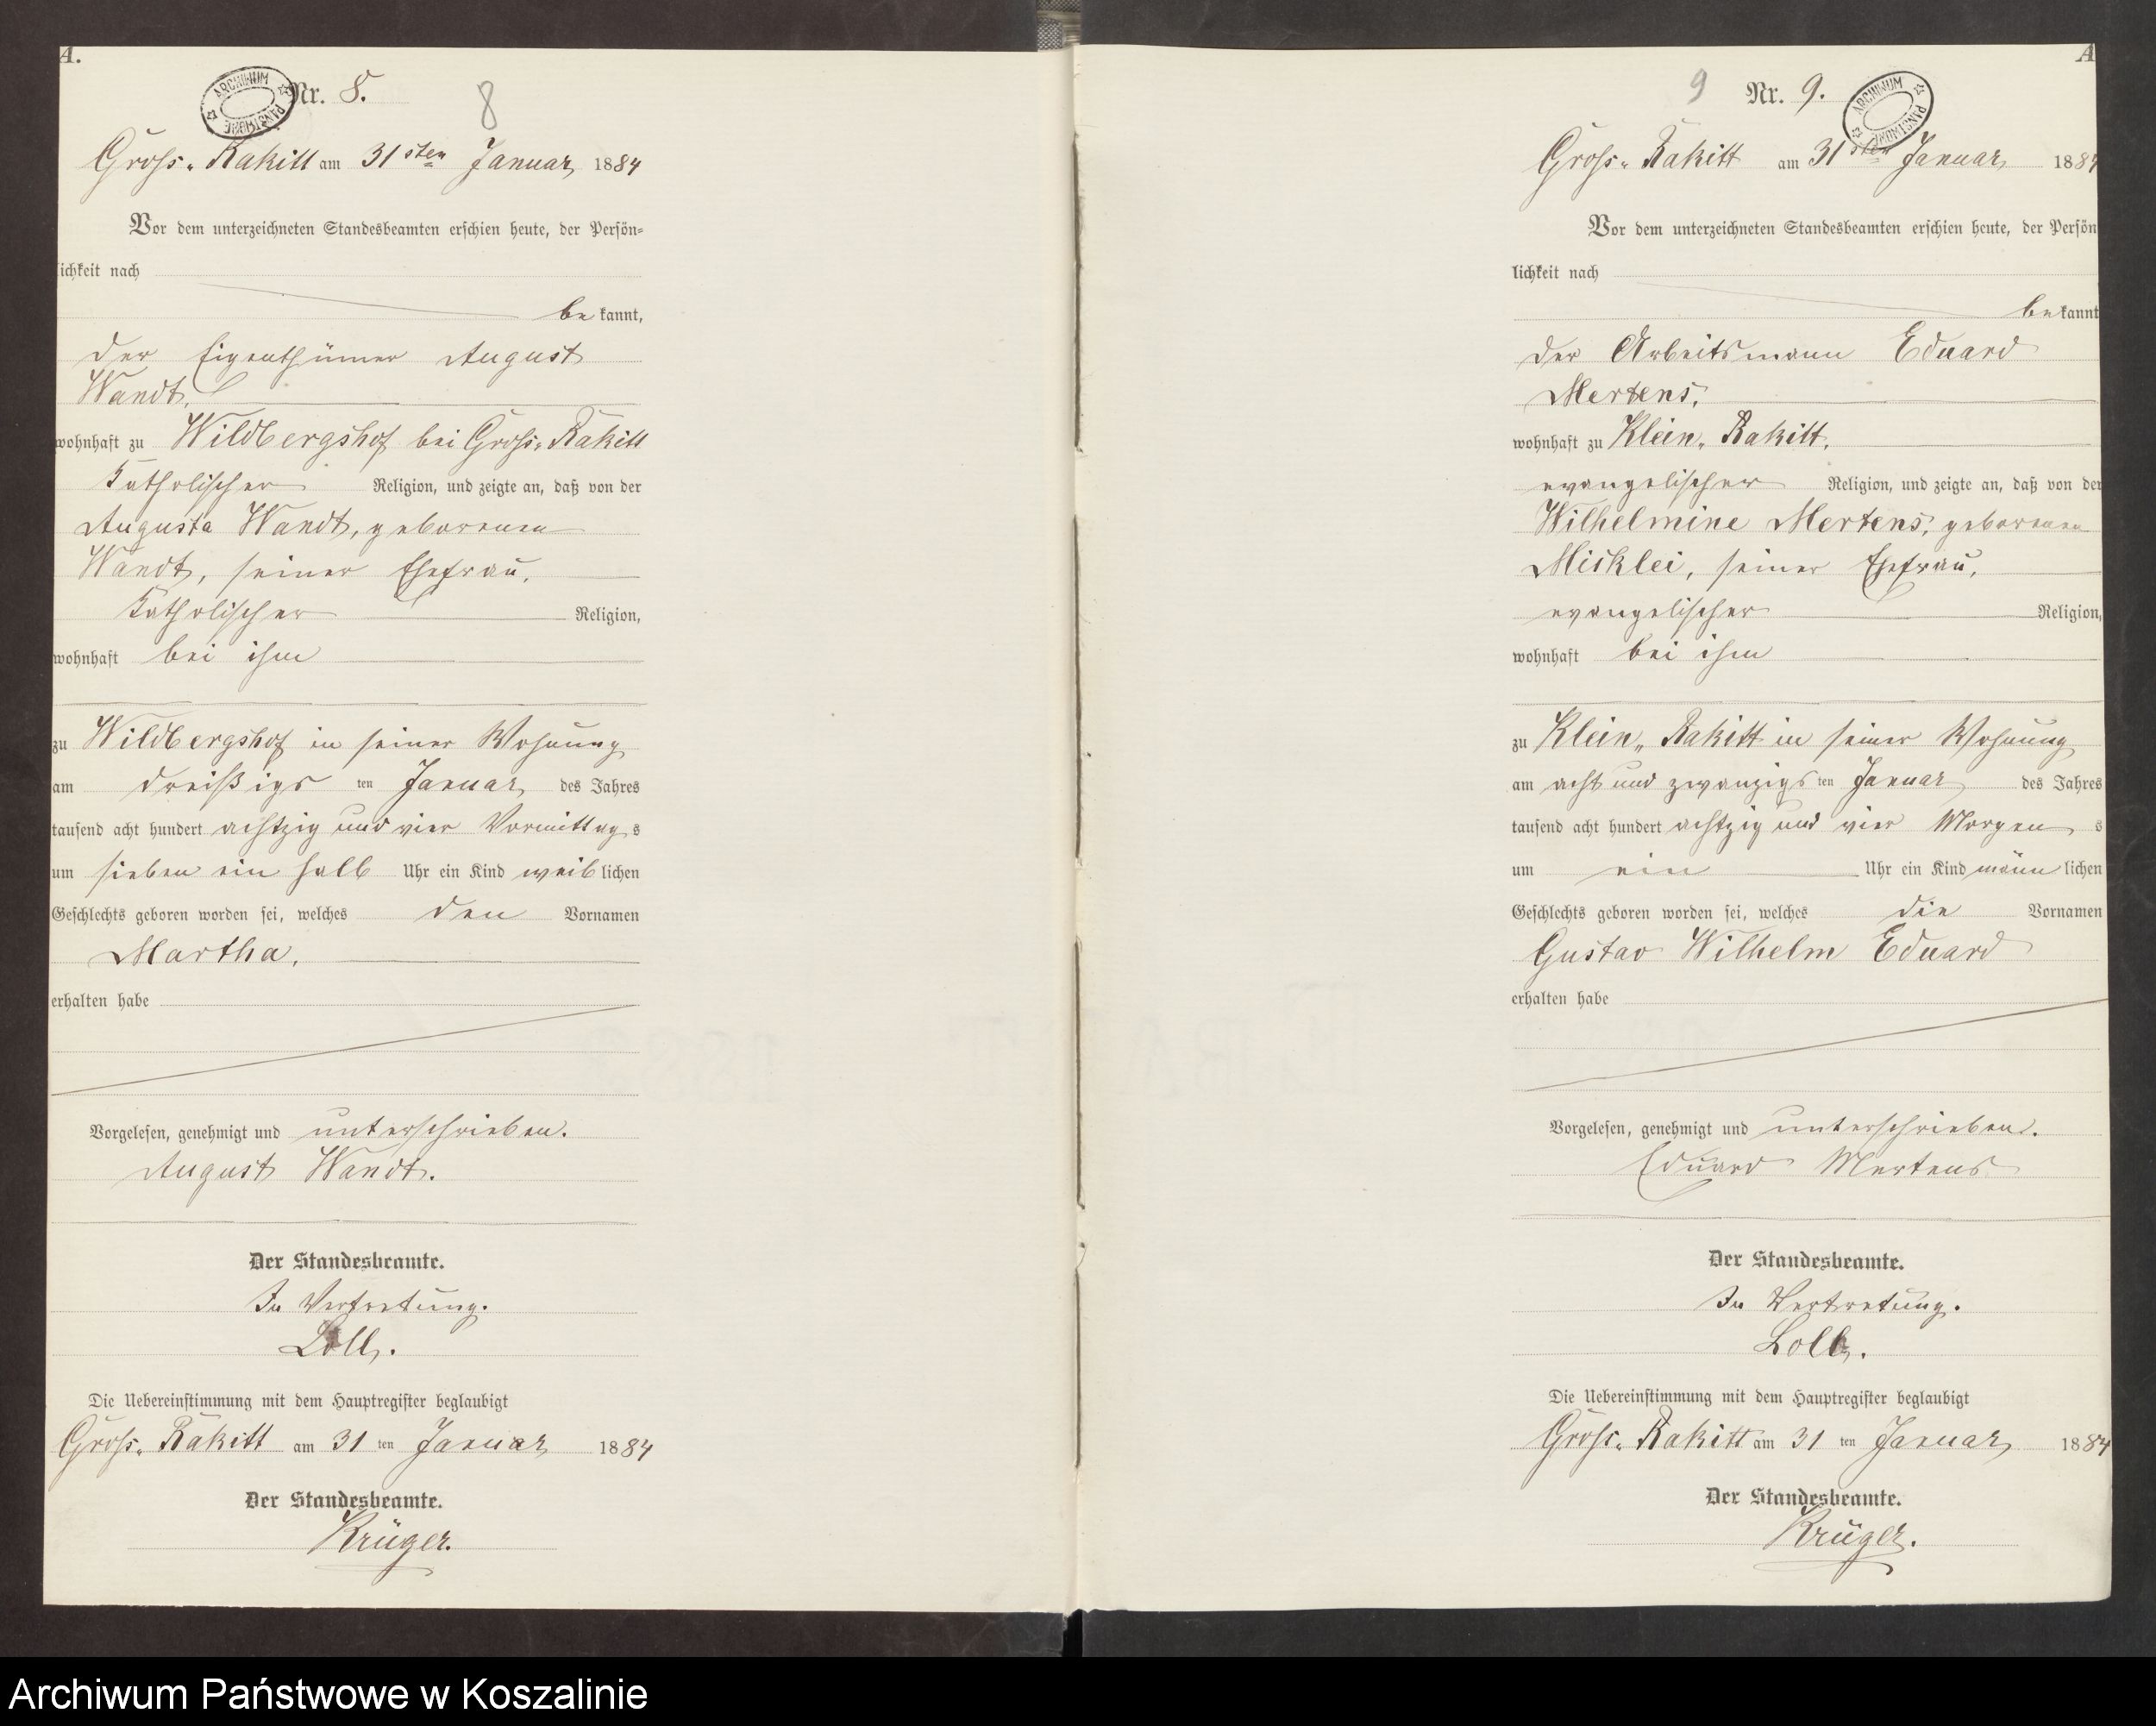 A.
Nr. 8.
8
ARCHIWUM PAŃSTWOWE
Gross-Rakitt am 31sten Januar 1884
Vor dem unterzeichneten Standesbeamten erschien heute, der Persön-
lichkeit nach
be kannt,
der Eigenthümer August
Wandt,
wohnhaft zu Wildbergshof bei Gross-Rakitt
katholischer Religion, und zeigte an, daß von der
Augusta Wandt, geborenen
Wandt, seiner Ehefrau,
katholischer Religion,
wohnhaft bei ihm
zu Wildbergshof in seiner Wohnung
am dreißigs ten Januar des Jahres
tausend acht hundert achtzig und vier Vormittag s
um sieben ein halb Uhr ein Kind weib lichen
Geschlechts geboren worden sei, welches den Vornamen
Martha,
erhalten habe
Vorgelesen, genehmigt und unterschrieben.
August Wandt.
Der Standesbeamte.
In Vertretung.
Loll.
Die Uebereinstimmung mit dem Hauptregister beglaubigt
Gross-Rakitt am 31 ten Januar 1884
Der Standesbeamte.
Krüger.
A
9 Nr. 9.
ARCHIWUM PAŃSTWOWE
Gross-Rakitt am 31sten Januar 1884
Vor dem unterzeichneten Standesbeamten erschien heute, der Persön
lichkeit nach
be kannt
der Arbeitsmann Eduard
Mertens,
wohnhaft zu Klein-Rakitt,
evangelischer Religion, und zeigte an, daß von der
Wilhelmine Mertens, geborenen
Misklei, seiner Ehefrau,
evangelischer Religion,
wohnhaft bei ihm
zu Klein-Rakitt in seiner Wohnung
am acht und zwanzigs ten Januar des Jahres
tausend acht hundert achtzig und vier Morgen s
um ein Uhr ein Kind männ lichen
Geschlechts geboren worden sei, welches die Vornamen
Gustav Wilhelm Eduard
erhalten habe
Vorgelesen, genehmigt und unterschrieben.
Eduard Mertens
Der Standesbeamte.
In Vertretung.
Loll.
Die Uebereinstimmung mit dem Hauptregister beglaubigt
Gross-Rakitt am 31 ten Januar 1884
Der Standesbeamte.
Krüger.
Archiwum Państwowe w Koszalinie